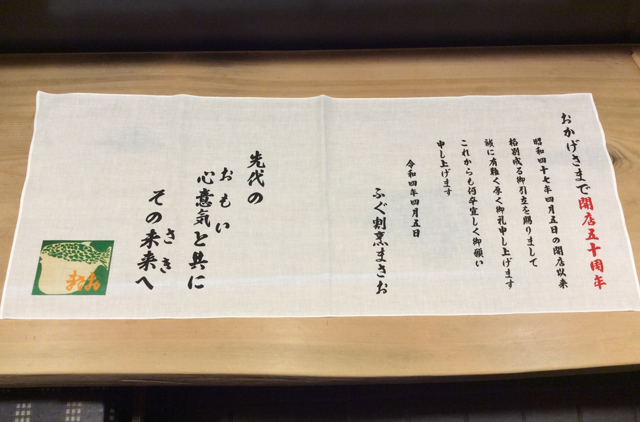 おかげさまで開店五十周年
昭和四十七年四月五日の開店以来
格別成る御引立を賜りまして
誠に有難く厚く御礼申し上げます
これからも何卒宜しく御願い
申し上げます
令和四年四月五日
ふぐ割烹まさお
先代の
おもい
心意気と共に
さき
その未来へ
まさお